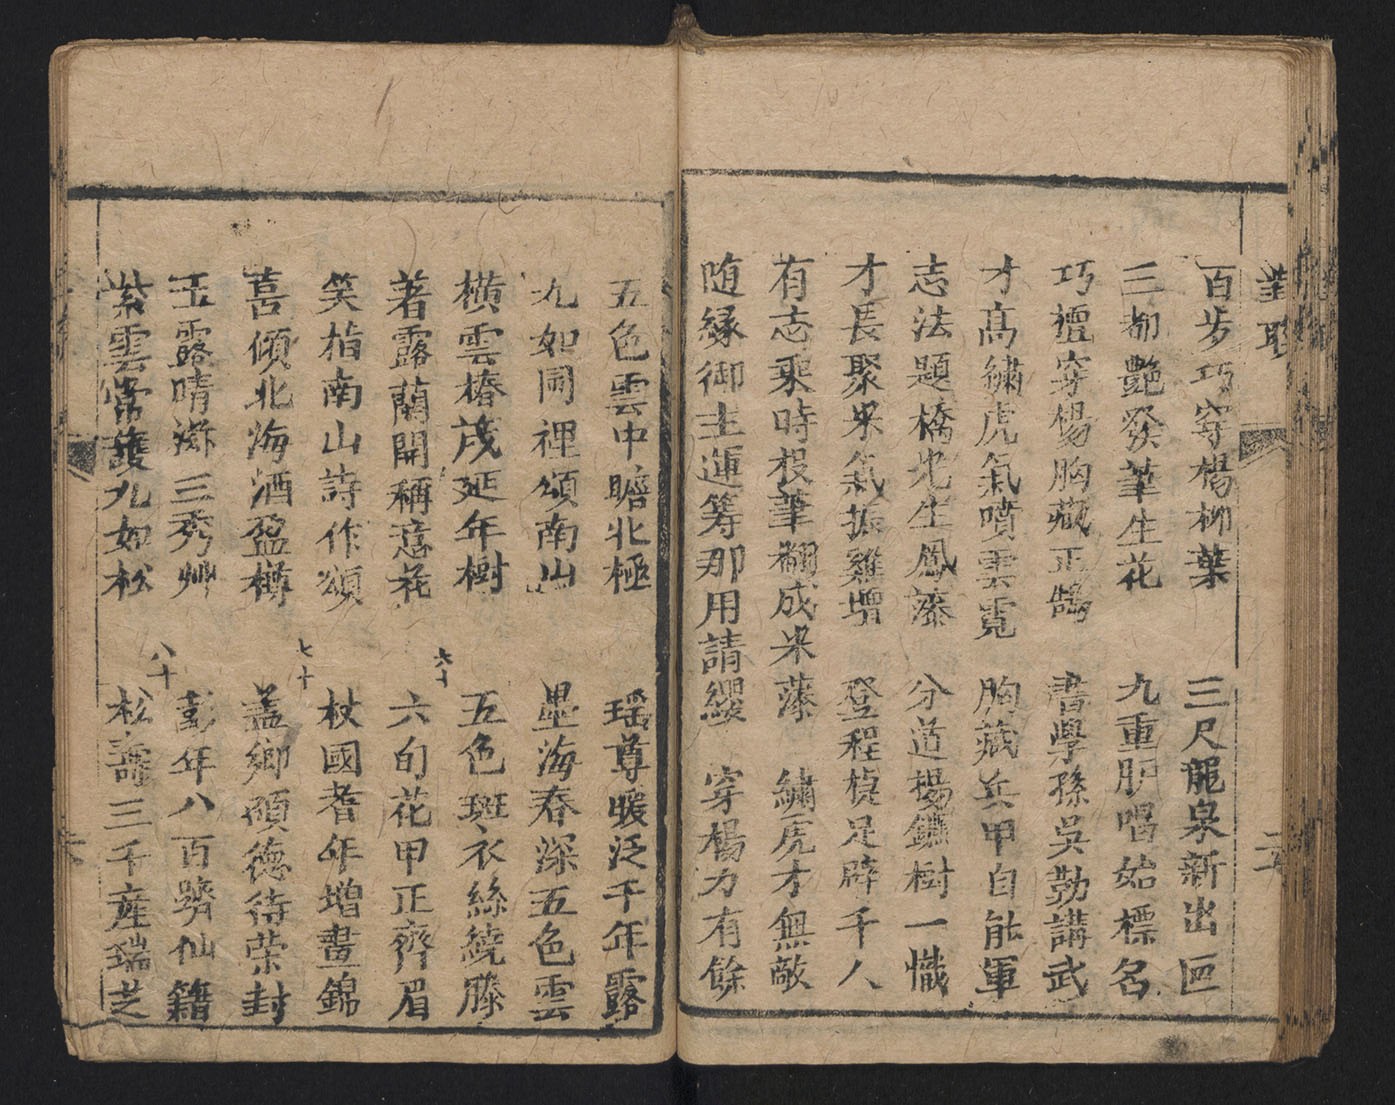 對聯
百步巧穿楊柳葉　三尺龍泉新出匣
三柳艷發筆生花　九重胪唱始標名
巧擅穿楊胸藏正鵠　書學孫吳勤講武
才高繡虎氣噴雲霓　胸藏兵甲自能軍
志法題橋光生鳳藻　分道楊鑣樹一幟
才長聚米氣振雞壇　登程楨足辟千人
有志乘時投筆翻成米藻　繡虎才無敵
随緣御主運筹那用請纓　穿楊力有餘
五色雲中瞻北極　瑶尊暖泛千年露
九如圖裡頌南山　墨海春深五色雲
橫雲椿茂延年樹　五色斑衣絲繞膝
著露蘭開稱意花　六旬花甲正齊眉
六十
笑指南山詩作頌　杖國耆年增畫錦
七十
喜傾北海酒盈樽　盖鄉碩德待荣封
玉露晴滋三秀艸　彭年八百躋仙籍
八十
紫雲常護九如松　松壽三千產瑞芝